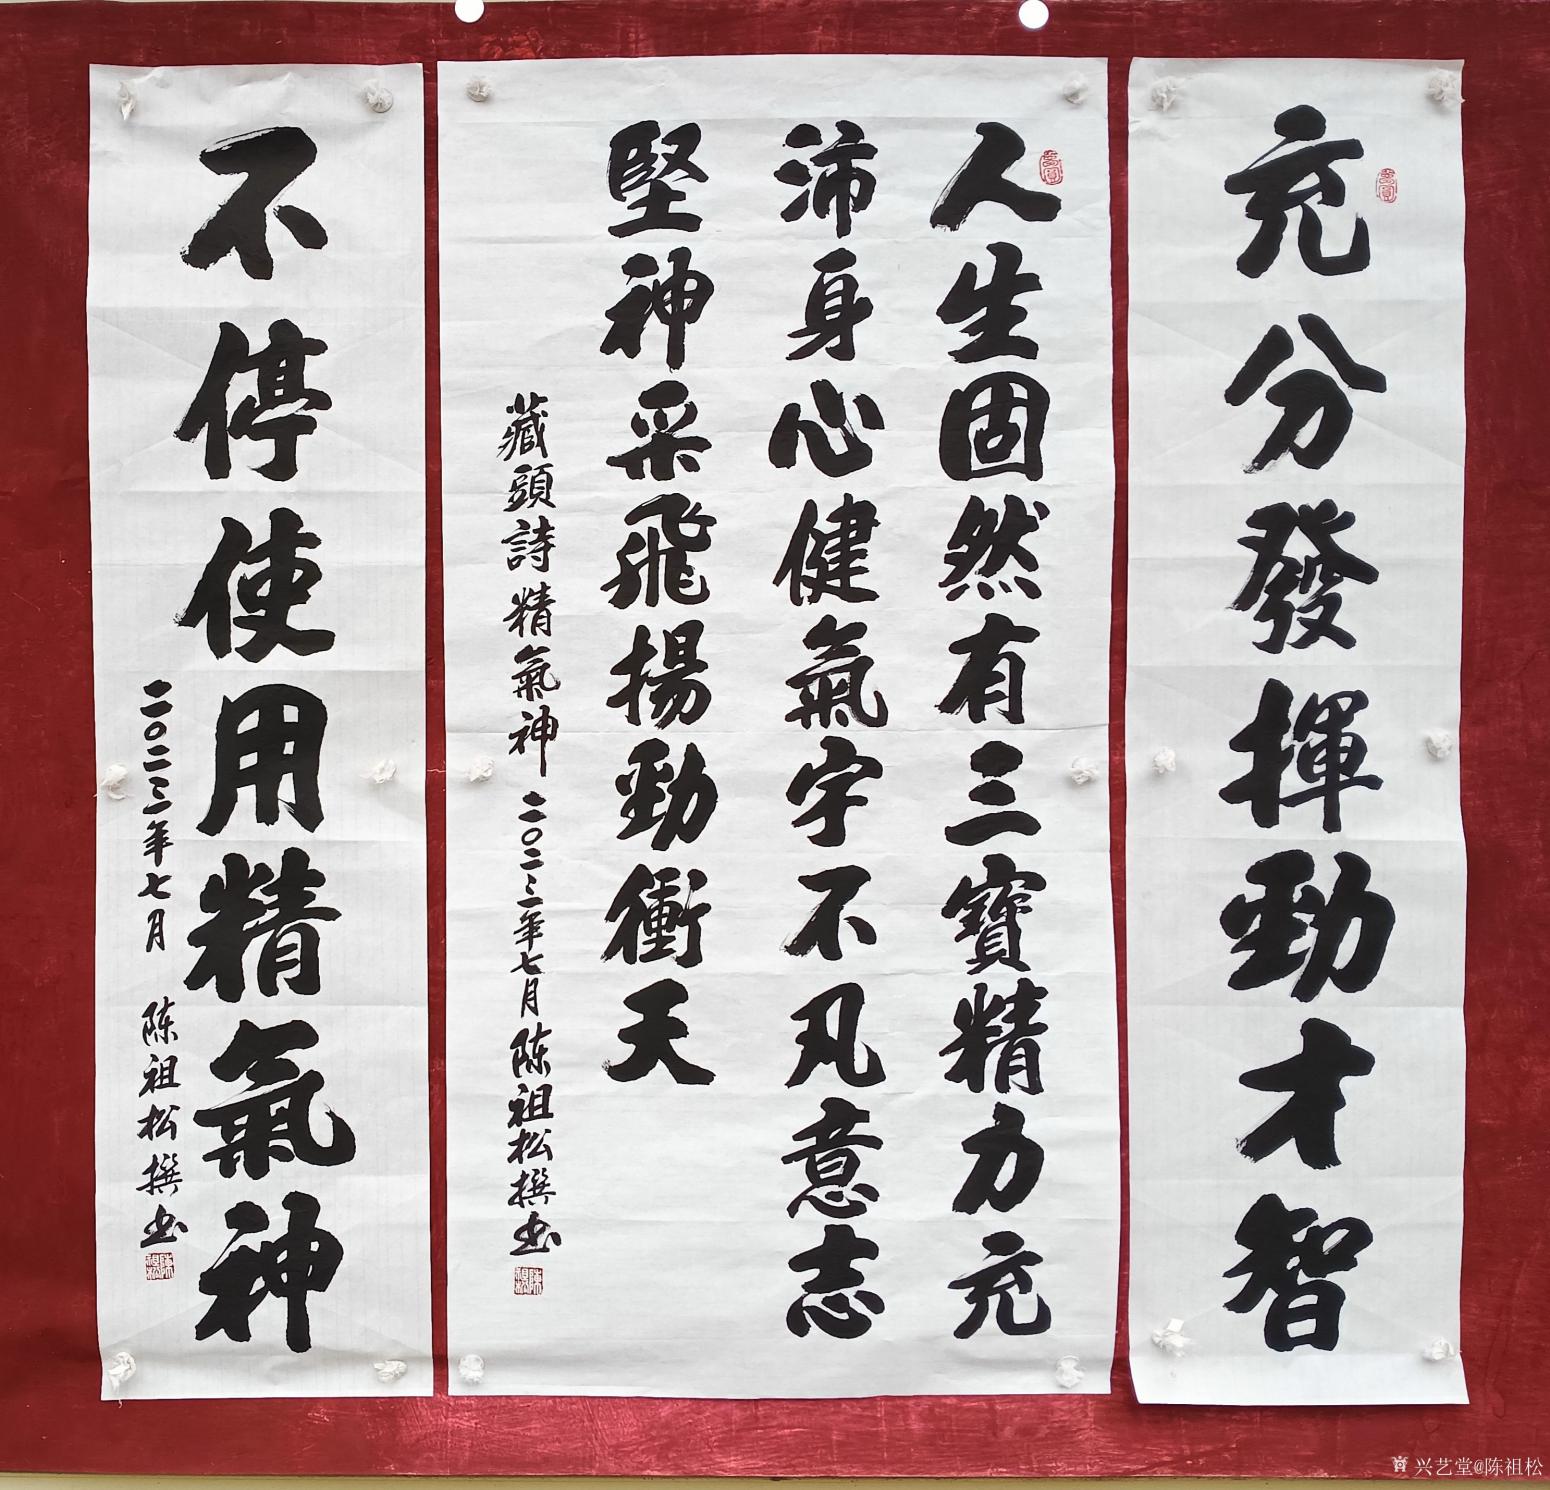 充分發揮勁才智
人生固然有三寶精力充
沛身心健氣宇不凡意志
堅神采飛揚勁衝天
藏頭詩精氣神 二〇二三年七月陈祖松撰书
不停使用精氣神
二〇二三年七月 陈祖松撰书
兴艺堂@陈祖松